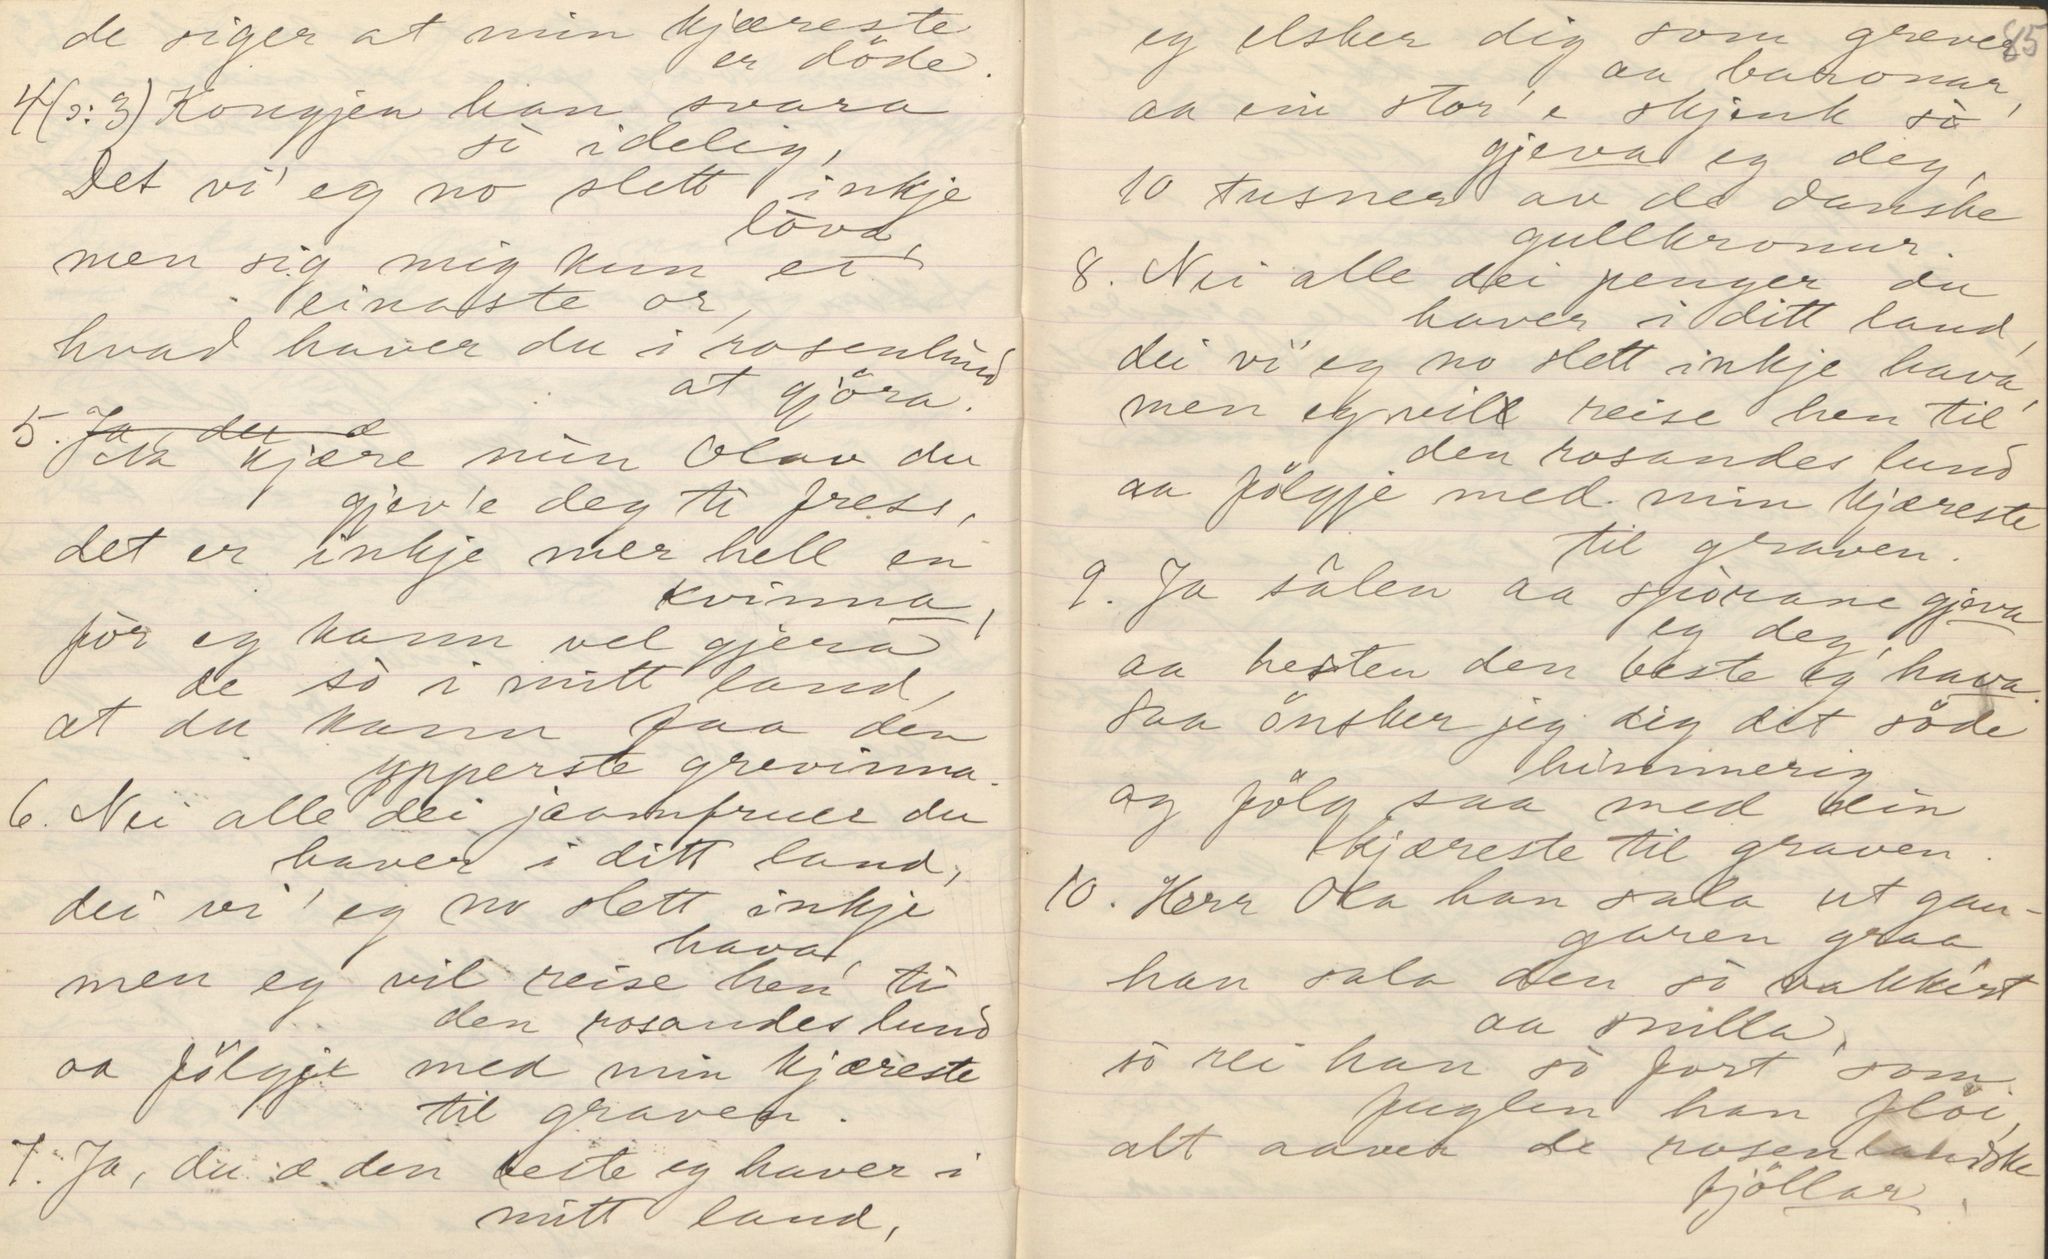 de siger at min kjæreste
er döde.
4 (ɔ: 3) Kongjen han svara
sò idelig,
Det vi' eg no slett inkje
lòva,
men sig mig kun ei
einaste or,
hvad haver du i rosenlund
at gjöra.
5. Ja, du æ
Aa kjære min Olav du
gjev'e deg ti fress,
det er inkje mer hell en
kvinna,
fòr eg kann vel gjera
de sò i mitt land,
at du kann faa den
ypperste grevinna.
6. Nei alle dei jaamfruer du
haver i ditt land,
dei vi' eg no slett inkje
hava,
men eg vil reise hen ti
den rosandes lund
aa fölgje med min kjæreste
til graven.
7. Ja, du æ den beste eg haver i
mitt land,
85
eg elsker dig som grever
aa baronar,
aa ein stor'e skjenk sò
gjeva eg deg,
10 tusner av de danske
gullkronur.
8. Nei alle dei penger du
haver i ditt land,
dei vi' eg no slett inkje hava,
men eg vill reise hen til
den rosandes lund
aa fölgje med min kjæreste
til graven.
9. Ja sålen aa spòrane gjeva
eg deg,
aa hesten den beste eg hava.
Saa önsker jeg dig det söde
himmerig
og fölg saa med din
kjæreste til graven.
10. Herr Ola han sala ut gan-
garen graa
han sala den sò vakkert
aa snilla,
sò rei han sò fort som
fuglen han flöi,
alt aaver de rosenlandske
fjöllar.